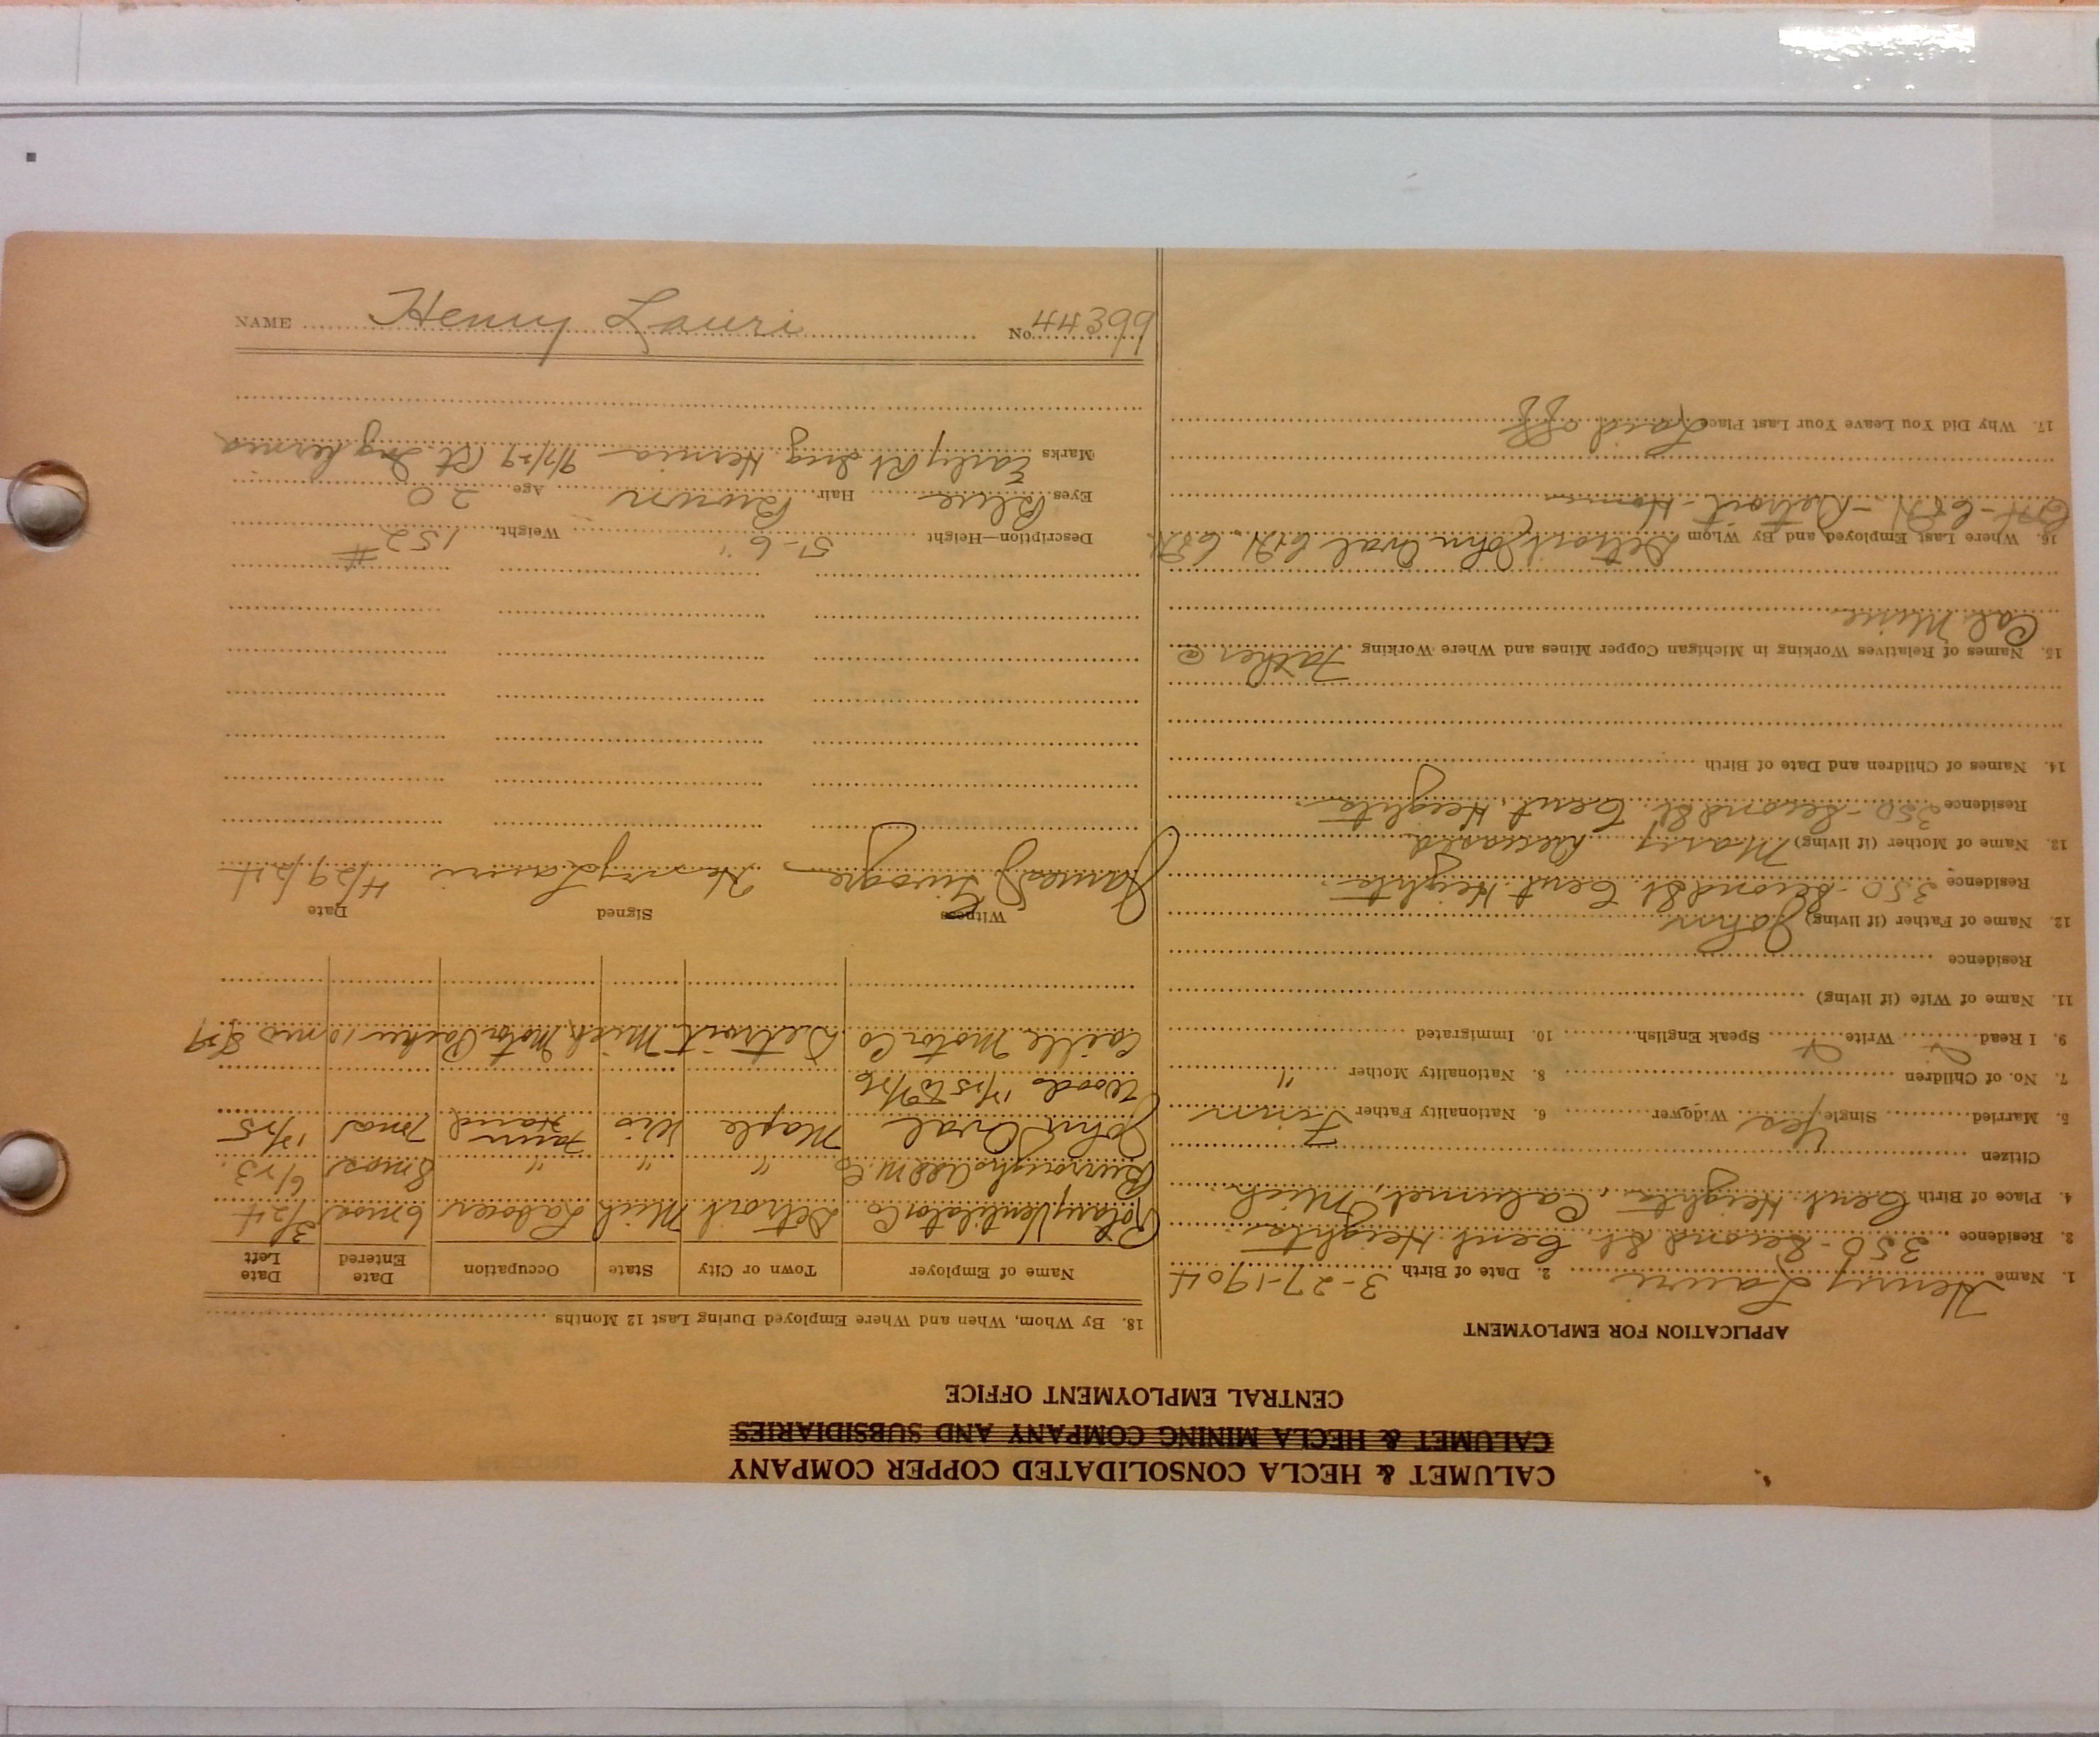 CALUMET & HECLA CONSOLIDATED COPPER COMPANY
CALUMET & HECLA MINING COMPANY AND SUBSIDIARIES
CENTRAL EMPLOYMENT OFFICE
APPLICATION FOR EMPLOYMENT
1. Name Henry Lauri 2. Date of Birth 3-27-1904
3. Residence 350-Second St. Cent. Heights
4. Place of Birth Cent. Heights, Calumet, Mich.
Citizen
5. Married Single Yes Widower 6. Nationality Father Finn
7. No. of Children 8. Nationality Mother "
9. I Read Write Speak English 10. Immigrated
11. Name of Wife (if living)
Residence
12. Name of Father (if living) John
Residence 350-Second St. Cent. Heights
13. Name of Mother (if living) Mary Deceased
Residence 350-Second St. Cent. Heights
14. Names of Children and Date of Birth
15. Names of Relatives Working in Michigan Copper Mines and Where Working Father @
Cal. Mine
16. Where Last Employed and By Whom Detroit, John Oval C&H C&H
C&H - Detroit - Home
17. Why Did You Leave Your Last Place Laid off
18. By Whom, When and Where Employed During Last 12 Months
Name of Employer Town or City State Occupation Date Entered Date Left
Rotary Ventilator Co Detroit Mich Laborer 6 mos 3/24
Burroughs Add M. Co " " " 8 mos 6/23
John Oval Maple Wis Farm Hand 7 mos 11/25
Woods 11/25 to 9/26
Caille Motor Co Detroit Mich. Motor Packer 10 mos 8/27
Witness Signed Date
James J Henry Lauri 4/29/24
Description—Height 5-6" Weight 152 #
Eyes Blue Hair Brown Age 20
Marks Early Rt Ing Hernia 9/7/29 Rt. Ing hernia
NAME Henry Lauri No. 44399